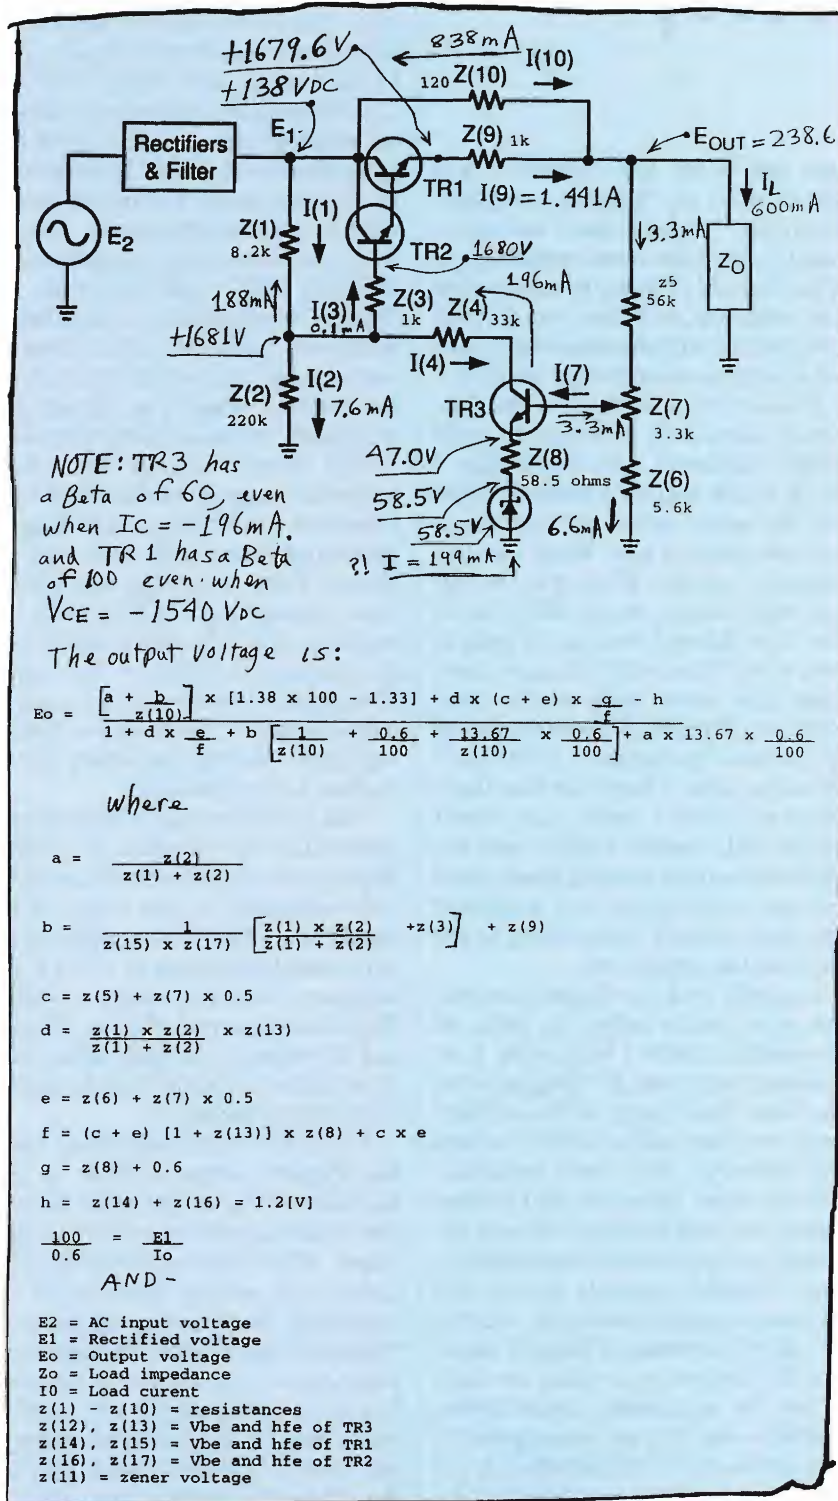 +1679.6 V
838mA
I(10)
+138 VDC
120 Z(10)
E1
Z(9) 1k
EOUT = 238.6
Rectifiers
& Filter
TR1
I(9) = 1.441A
IL
600mA
I(1)
Z(1)
8.2k
TR2
1680V
3.3mA
E2
ZO
188mA
I(3)
0.1mA
Z(3)
1k
196mA
Z(4) 33k
z5
56k
+1681V
I(4)
I(7)
Z(2)
220k
I(2)
7.6mA
TR3
3.3mA
Z(7)
3.3k
47.0V
Z(8)
58.5 ohms
Z(6)
5.6k
58.5V
58.5V
6.6mA
?! I = 199mA
NOTE: TR3 has
a Beta of 60, even
when IC = -196mA.
and TR1 has a Beta
of 100 even when
VCE = -1540 VDC
The output voltage is:
Eo = [a + b / z(10)] x [1.38 x 100 - 1.33] + d x (c + e) x g / f - h
1 + d x e / f + b [1 / z(10) + 0.6 / 100 + 13.67 / z(10) x 0.6 / 100] + a x 13.67 x 0.6 / 100
where
a = z(2) / z(1) + z(2)
b = 1 / z(15) x z(17) [z(1) x z(2) / z(1) + z(2) +z(3)] + z(9)
c = z(5) + z(7) x 0.5
d = z(1) x z(2) / z(1) + z(2) x z(13)
e = z(6) + z(7) x 0.5
f = (c + e) [1 + z(13)] x z(8) + c x e
g = z(8) + 0.6
h = z(14) + z(16) = 1.2[V]
100 / 0.6 = E1 / Io
AND -
E2 = AC input voltage
E1 = Rectified voltage
Eo = Output voltage
Zo = Load impedance
I0 = Load curent
z(1) - z(10) = resistances
z(12), z(13) = Vbe and hfe of TR3
z(14), z(15) = Vbe and hfe of TR1
z(16), z(17) = Vbe and hfe of TR2
z(11) = zener voltage